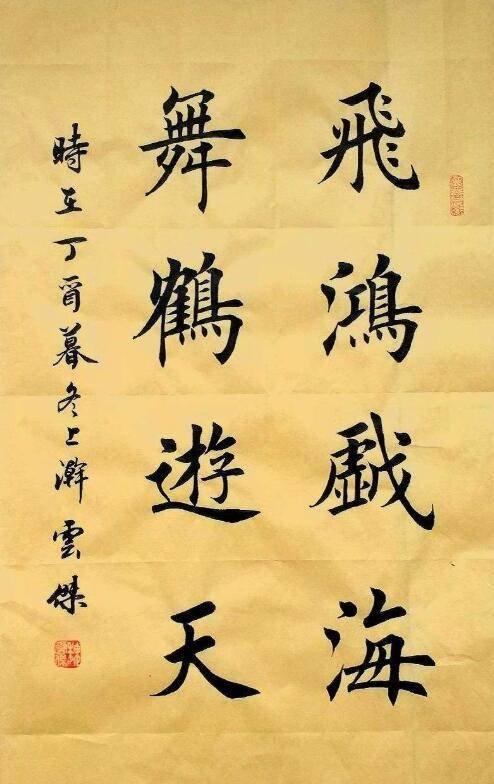 飛鴻戲海
舞鶴遊天
時在丁酉暮冬上澣雲傑